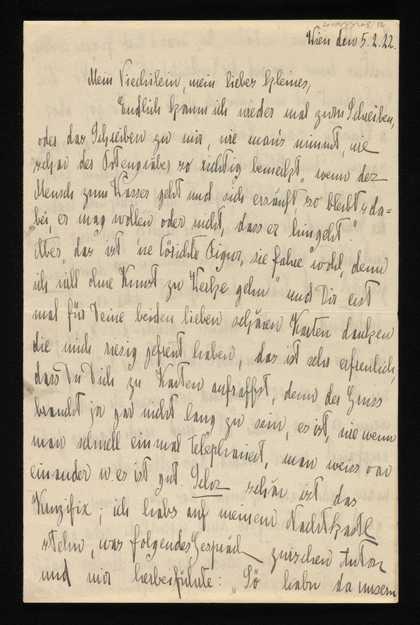 Wien den 5.2.22.
Mein Viecherlein, mein liebes Kleines,
Endlich komm ich wieder mal zum Schreiben,
oder das Schreiben zu mir, wie man's nimmt, wie
schon der Totengräber so richtig bemerkt, wenn der
Mensch zum Wasser geht und sich ersäuft so bleibt's da=
bei, er mag wollen oder nicht, dass er hingeht.
Aber, das ist 'ne törichte Figur, sie fahre wohl, denn
ich will ohne Kunst zu Werke gehn" und Dir erst
mal für Deine beiden lieben schönen Karten danken
die mich riesig gefreut haben, das ist sehr erfreulich,
dass Du Dich zu Karten aufraffst, denn der Gruss
braucht ja gar nicht lang zu sein, es ist, wie wenn
man schnell einmal telephoniert, man weiss von
einander u es ist gut. Sehr schön ist das
Kruzifix; ich liess auf meinem Nachtkastl
stehn, was folgendes Gespräch zwischen Anton
und mir herbeiführte: "Sö haben da unsern